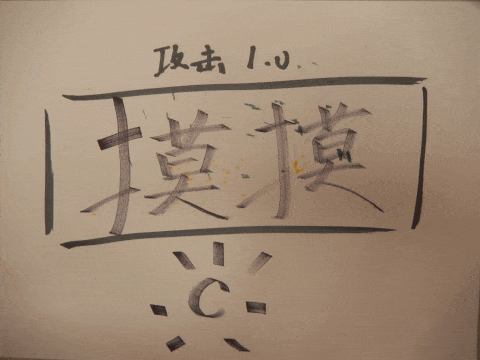 攻击 1.0
摸摸
C